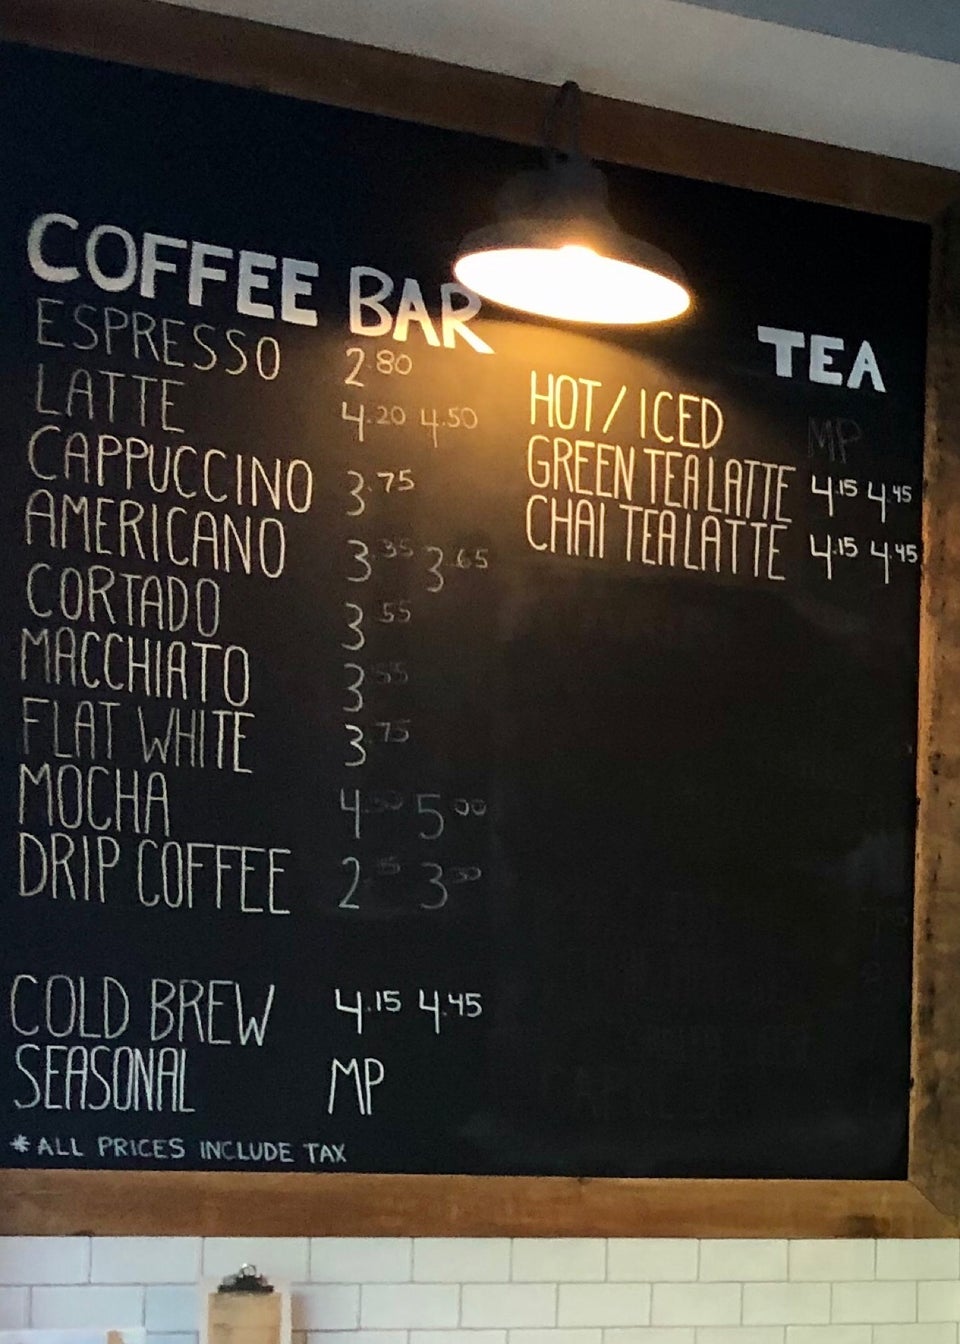 COFFEE BAR
ESPRESSO 2.80
LATTE 4.20 4.50
CAPPUCCINO 3.75
AMERICANO 3.35 3.65
CORTADO 3.55
MACCHIATO 3.55
FLAT WHITE 3.75
MOCHA 5.00
DRIP COFFEE
COLD BREW 4.15 4.45
SEASONAL MP
*ALL PRICES INCLUDE TAX
TEA
HOT/ICED MP
GREEN TEA LATTE 4.15 4.45
CHAI TEA LATTE 4.15 4.45